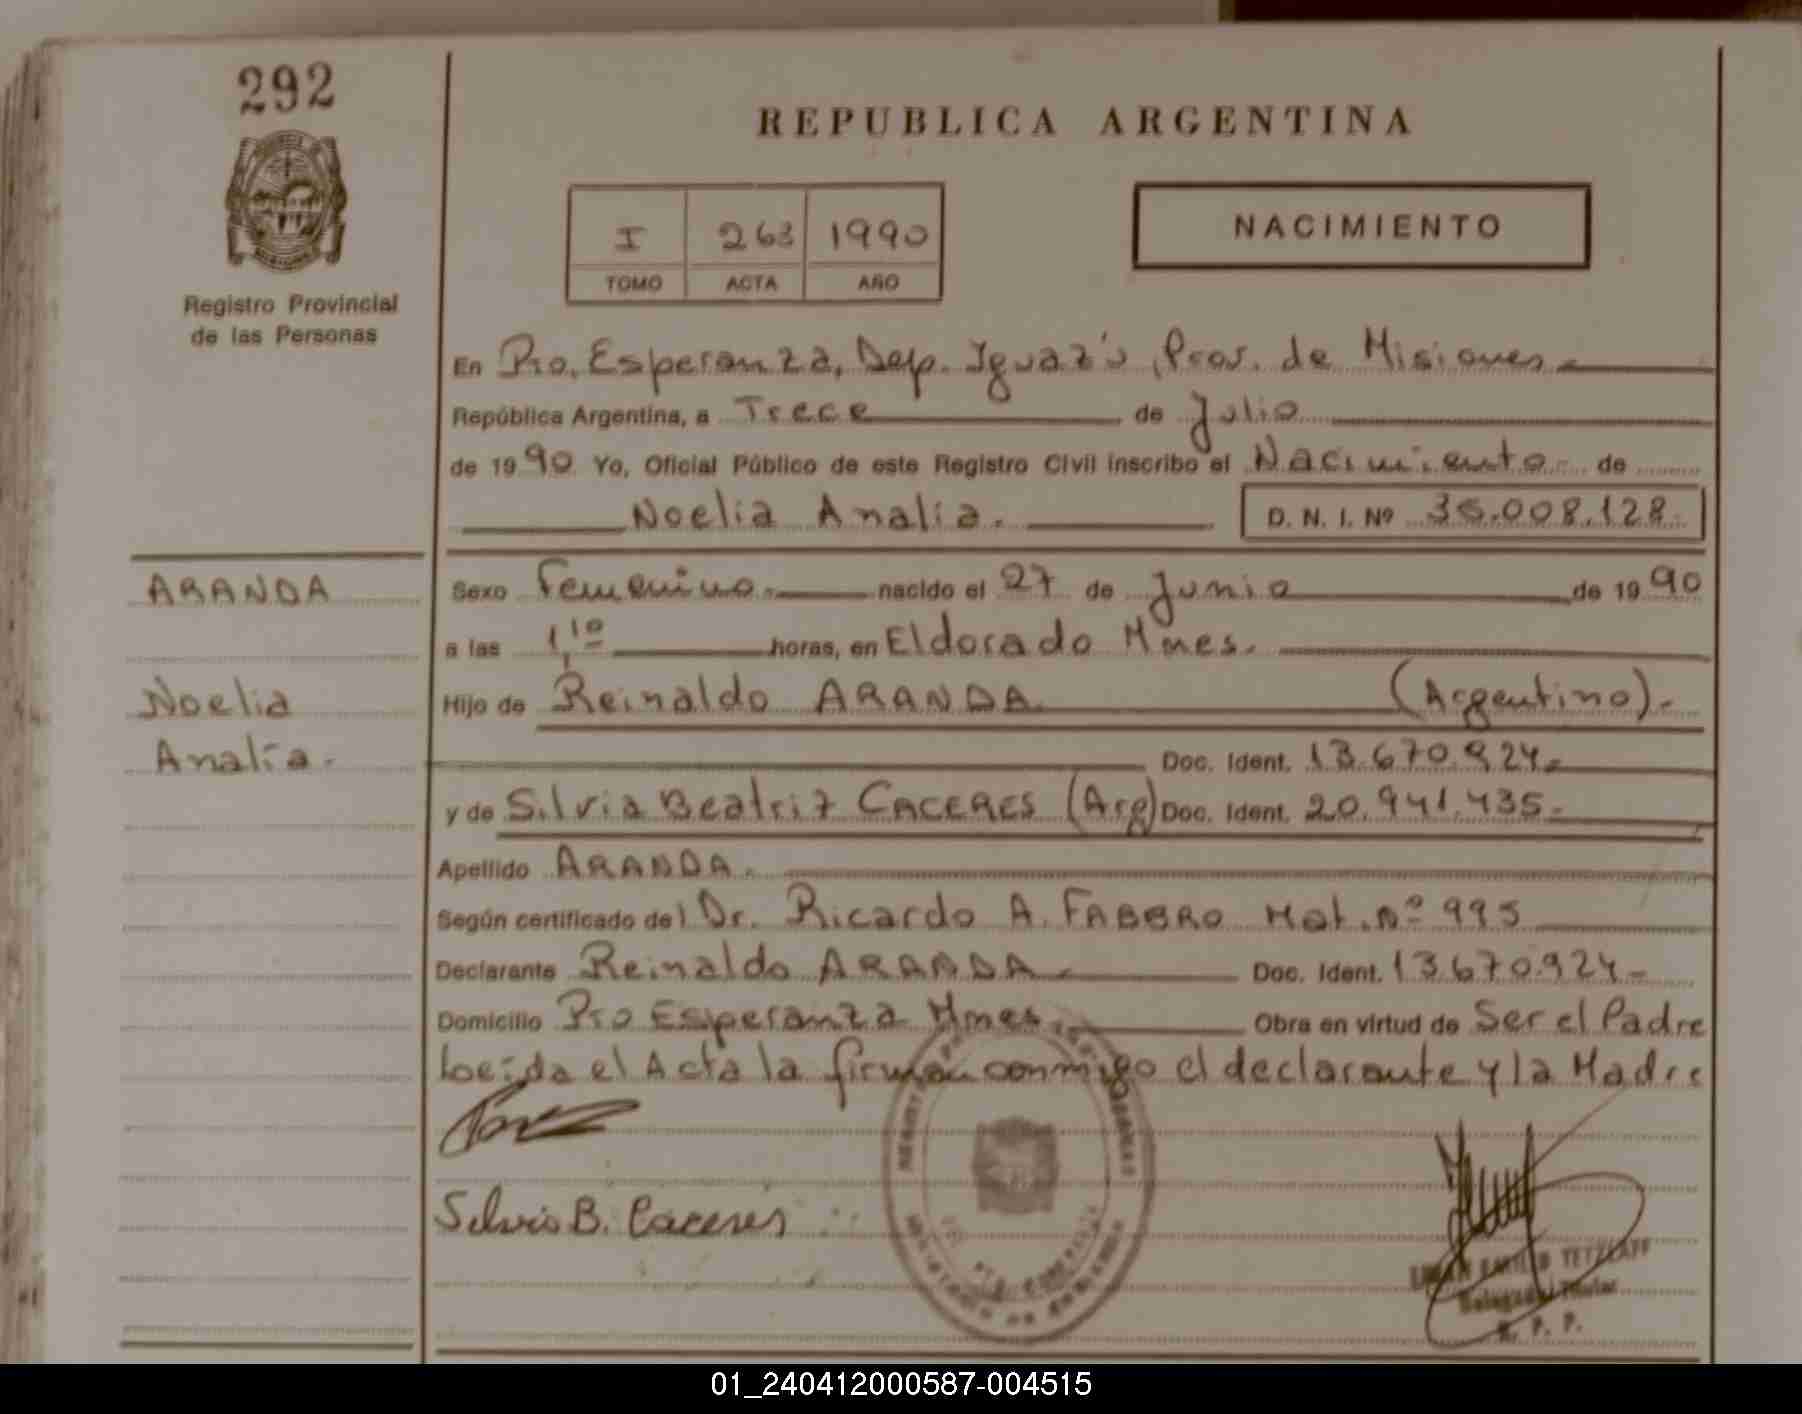 292
REPUBLICA ARGENTINA
I 263 1990
TOMO ACTA AÑO
NACIMIENTO
Registro Provincial
de las Personas
En Pto. Esperanza, Dep. Iguazú, Prov. de Misiones
República Argentina, a Trece de Julio
de 1990 Yo, Oficial Público de este Registro Civil inscribo el Nacimiento de
Noelia Analía. D. N. I. Nº 35.008.128
ARANDA
Noelia
Analía.
Sexo Femenino nacido el 27 de Junio de 1990
a las 1,10 horas, en Eldorado Mnes.
Hijo de Reinaldo ARANDA (Argentino).
Doc. Ident. 13.670.924
y de Silvia Beatriz CACERES (Arg) Doc. Ident. 20.941.435
Apellido ARANDA.
Según certificado del Dr. Ricardo A. FABBRO Mat. Nº 995
Declarante Reinaldo ARANDA Doc. Ident. 13.670.924
Domicilio Pto Esperanza Mnes Obra en virtud de Ser el Padre
Leída el Acta la firman conmigo el declarante y la Madre
Silvia B. Caceres
TETZLAFF
Delegado Titular
R. P. P.
01_240412000587-004515